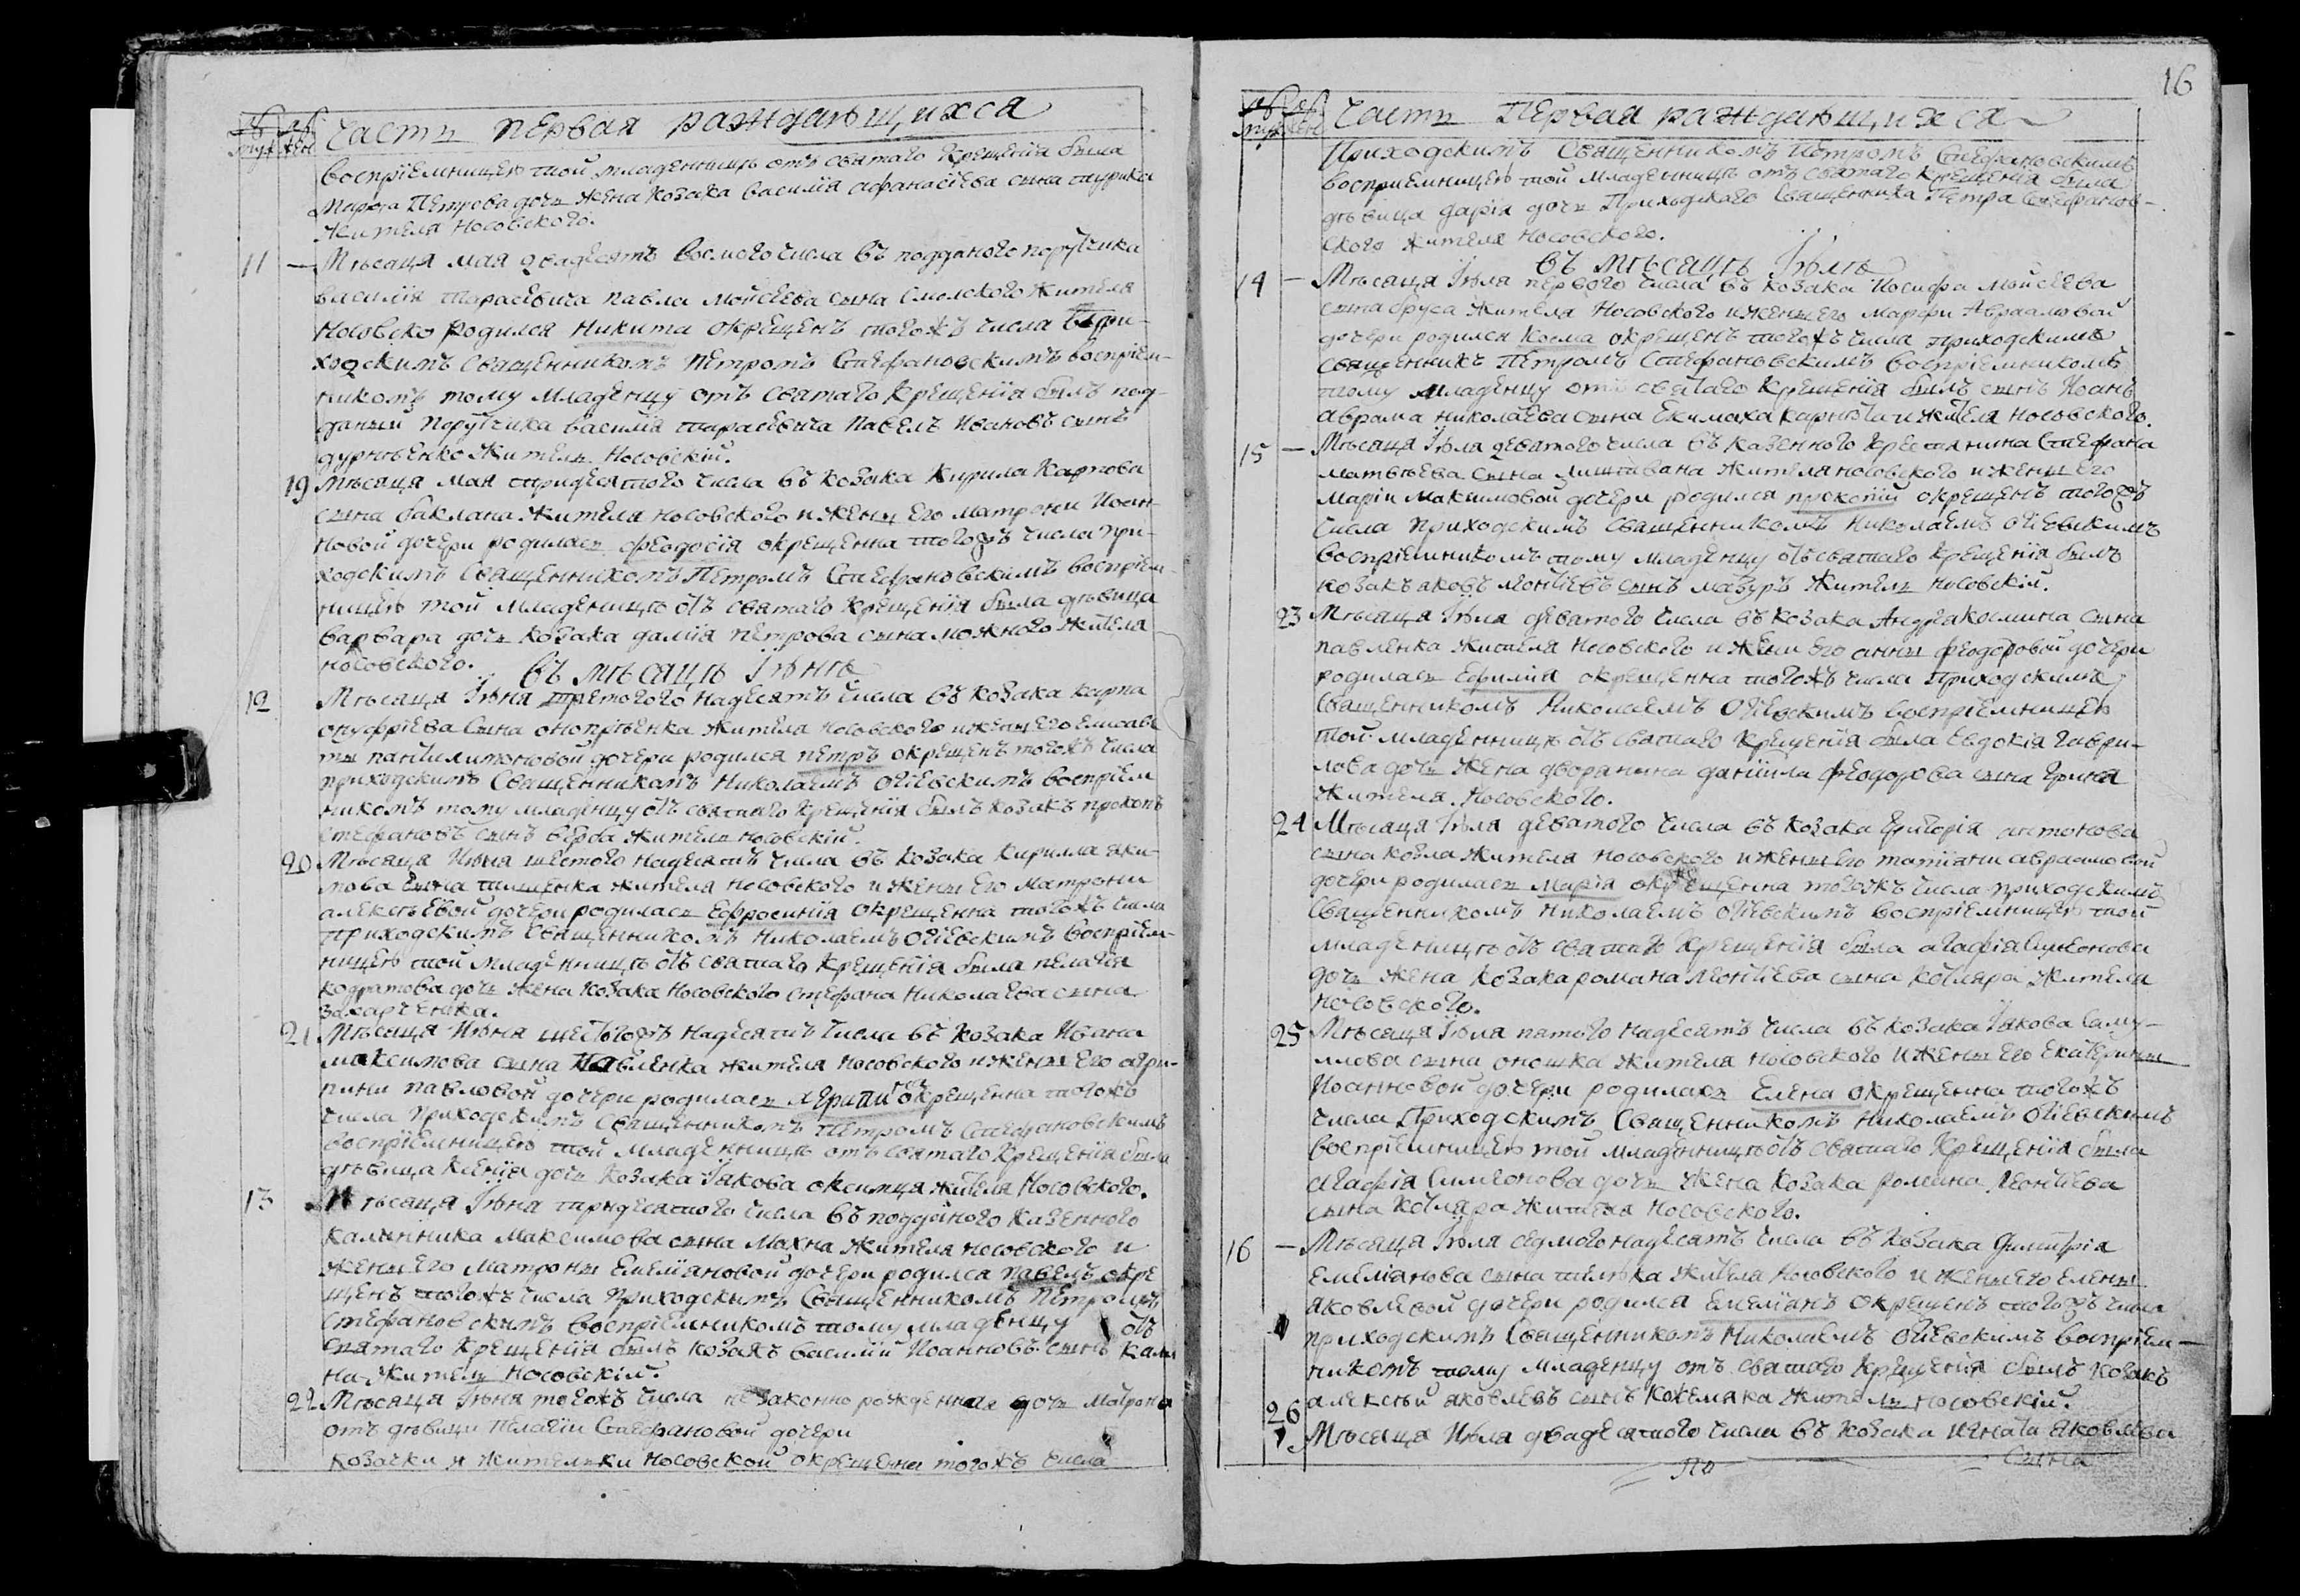 Часть первая раждающихся
воспріемницею той младенницѣ отъ святаго Крещенія была
Петрова дочь жена козака василія афанасіева сына
жителя Носовского.
11 — Мѣсяця мая двадесятъ восмого числа въ подданого порутчика
василія тарасѣвича павла моисеева сына жителя
Носовско родился Никита окрещенъ тогожъ числа при-
ходскимъ священникомъ петромъ Стефановскимъ воспріем-
никомъ тому младенцу отъ святаго Крещенія былъ под-
даний порутчика василія тарасѣвича Павелъ Ивановъ сынъ
житель Носовскій.
19 Мѣсяця мая тридесятого числа въ козака Кирила Карпова
сына баклана жителя носовского и жены его матрони Иоан-
новой дочери родилась феодосія окрещенна тогожъ числа при-
ходскимъ Священникомъ Петромъ Стефановскимъ воспріем-
ницею той младенницѣ отъ святаго Крещенія была дѣвица
варвара дочь козака петрова сына можного жителя
носовского.
въ мѣсяцѣ Іюнѣ
12 Мѣсяця Іюня третогого надесятъ числа въ козака карпа
онуфріева сына онопрѣенка жителя носовского и жены его елисаве
ты дочери родился петръ окрещенъ тогожъ числа
приходскимъ Священникомъ Николаемъ воспріем
никомъ тому младенцу отъ святаго Крещенія былъ козакъ прокопъ
стефановъ сынъ верба житель носовскій.
20 Мѣсяця Июня шестого надесятъ числа въ козака Кирилла яки-
мова сына жителя носовского и жены его матрони
алексѣевой дочери родилась Ефросинія окрещенна тогожъ числа
приходскимъ Священникомъ Николаемъ воспріем-
ницею той младенницѣ отъ святаго Крещенія была пелагия
кодратова дочь жена козака носовского стефана николаева сына
захарченка.
21 Мѣсяця Июня шестогожъ надесятъ числа въ козака Ивана
максимова сына павленка жителя носовского и жены его агри-
пини павловой дочери родилась окрещенна тогожъ
числа приходскимъ священникомъ петромъ Стефановскимъ
воспріемницею той младенницѣ отъ святаго крещенія была
дѣвица ксенія дочь козака Іакова жителя Носовского.
13 Мѣсяця Іюня тридесятого числа въ подданого казенного
калинника максимова сына Махна жителя носовского и
жены его матроны Емеліановой дочери родился павелъ окре
щенъ тогожъ числа приходскимъ Священникомъ Петромъ
Стефановскимъ воспріемникомъ тому младенцу отъ
святаго Крещенія былъ козакъ василій Иоанновъ сынъ кали
на житель носовскій.
22 Мѣсяця Іюня тогожъ числа незаконно рожденная дочь Матрона
отъ дѣвици Пелагіи Стефановой дочери
козачки и жительки носовской окрещена тогожъ числа
16
Часть Первая раждающихся
Приходскимъ Священникомъ Петромъ Стефановскимъ
воспріемницею той младенницѣ отъ святаго Крещенія была
дѣвица дарія дочь Приходского Священника Петра Стефанов-
ского жителя носовского.
въ мѣсяцѣ Іюлѣ
14 — Мѣсяця Іюля первого числа въ козака Иосифа мойсеева
сына бруса жителя Носовского и жены его Марфи Авраамовой
дочери родился Косма окрещенъ тогожъ числа приходскимъ
священникъ Петромъ Стефановскимъ воспріемникомъ
тому младенцу отъ святаго Крещенія былъ сынъ Иоанъ
аврама николаева сына жителя носовского.
15 — Мѣсяця Іюля девятого числа въ казенного крестянина Стефана
матвѣева сына жителя носовского и жены его
маріи максимовой дочери родился прокопій окрещенъ тогожъ
числа приходскимъ священникомъ николаемъ
воспріемникомъ тому младенцу отъ святаго крещенія былъ
козакъ яковъ леонтіевъ сынъ мазуръ житель носовскій.
23 Мѣсяця Іюля девятого числа въ козака Андрея космина сына
павленка жителя носовского и жены его анны феодоровой дочери
родилась Ефимія окрещенна тогожъ числа Приходскимъ
Священникомъ Николаемъ воспріемницею
той младенницѣ отъ святаго Крещенія была евдокія гаври-
лова дочь жена дворянина даніила феодорова сына
жителя Носовского.
24 Мѣсяця Іюля девятого числа въ козака Григорія антонова
сына козла жителя носовского и жены его татіани авраамовой
дочери родилась Марія окрещенна тогожъ числа приходскимъ
священникомъ николаемъ воспріемницею той
младенницѣ отъ святаго Крещенія была агафія Симеонова
дочь жена козака романа леонтіева сына котляра жителя
носовского.
25 Мѣсяця Іюля пятого надесятъ числа въ козака Іакова саму-
илова сына оношка жителя носовского и жены его екатерины
Иоанновой дочери родилась Елена окрещенна тогожъ
числа Приходскимъ Священникомъ николаемъ
воспріемницею той младенницѣ отъ святаго Крещенія была
агафія Симеонова дочь жена козака романа леонтіева
сына котляра жителя носовского.
16 — Мѣсяця Іюля седмого надесятъ числа въ козака Димитрія
емеліанова сына жителя носовского и жены его елены
яковлевой дочери родился Емеліанъ окрещенъ тогожъ числа
приходскимъ Священникомъ Николаемъ воспріем-
никомъ тому младенцу отъ святаго крещенія былъ козакъ
алексѣй яковлевъ сынъ кожемяка житель носовскій.
26 Мѣсяця Июля двадесятого числа въ козака игната яковлева
сына